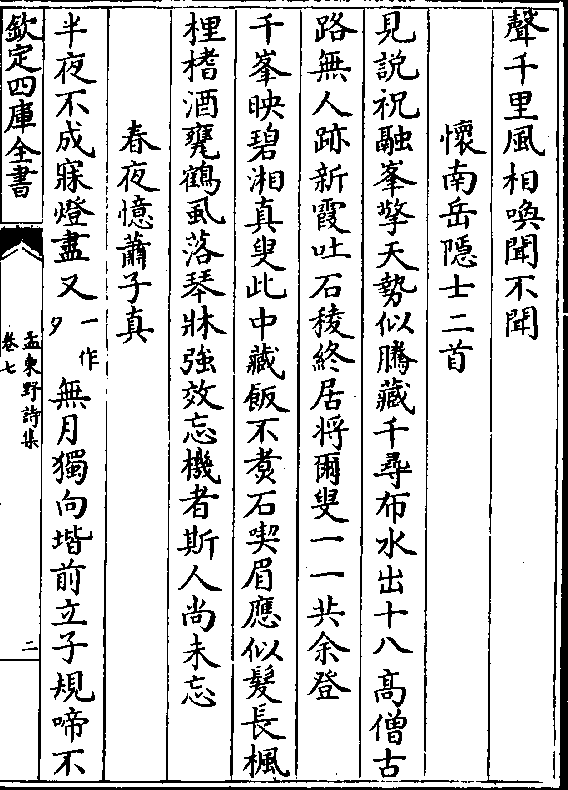 聲千里風相喚聞不聞
懷南岳隱士二首
見說祝融峯擎天勢似騰藏千尋布水出十八高僧古
路無人跡新霞吐石稜終居將爾叟一一共余登
千峯映碧湘真叟此中藏飯不煑石喫眉應似髮長楓
柽榰酒甕鶴虱落琴牀強效忘機者斯人尚未忘
春夜憶蕭子真
半夜不成寐燈盡又一作夕無月獨向堦前立子規啼不
欽定四庫全書
孟東野詩集
卷七
二